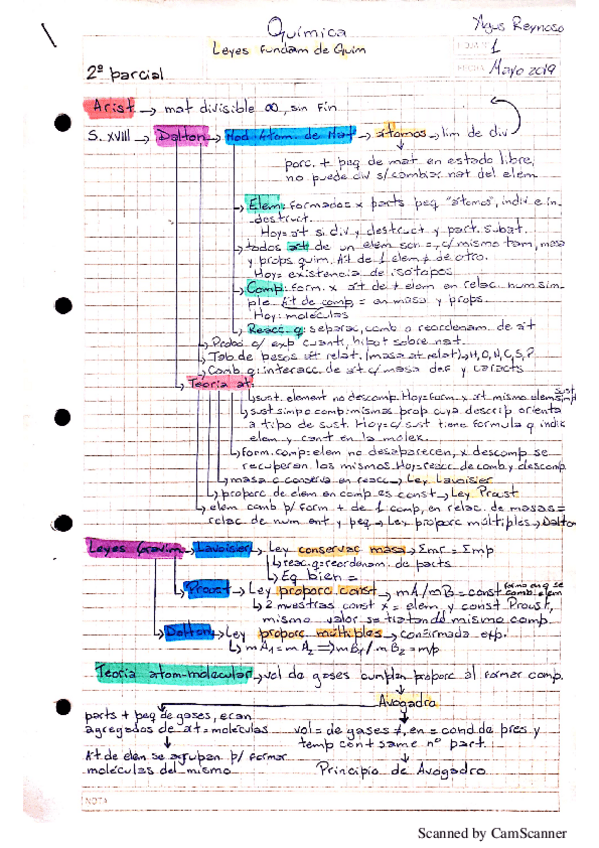 Química
Agus Reynoso
Leyes Fundam de Quim
1
FECHA Mayo 2019
2º parcial
Arist → mat divisible ∞, sin fin
S. XVIII → Dalton → Mod Atom. de Mat → átomos → lim de div
porc. + peq de mat en estado libre,
no puede div s/cambiar nat del elem
→ Elem: formados x parts peq "átomos", indiv e in-
destruct.
Hoy = át si div y destruct y part. subat.
→ todos át de un elem son =, c/mismo tam, masa
y props quim. At de 1 elem ≠ de otro.
Hoy = existencia de isótopos
→ Comp: form. x át de ≠ elem en relac. num sim-
ple. At de comp = en masa y props.
Hoy: moléculas
→ Reacc q: separac, comb o reordenam. de át
→ Probó c/ exp cuant, hipót sobre nat.
→ Tab de pesos át relat. (masa at relat) → H, O, N, C, S, P
→ Comb q: interacc de át c/ masa def y caracts
→ Teoría at:
→ sust. element no descomp. Hoy = form x át mismo elem sust simp
→ sust simp o comb: mismas prop cuya descrip orienta
a tipo de sust. Hoy = c/ sust tiene formula q indic
elem y cant en la molec.
→ form. comp: elem no desaparecen, x descomp se
recuperan los mismos. Hoy = reacc de comb y descomp
→ masa c conserva en reacc → Ley Lavoisier
→ proporc de elem en comp es const → Ley Proust
→ elem comb p/ form + de 1 comp, en relac. de masas =
relac de num ent y peq → Ley proporc múltiples → Dalton
Leyes Gravim → Lavoisier → Ley conservac masa → Σmr = Σmp
→ reac. q = reordenam. de parts
→ Eq bien =
→ Proust → Ley proporc const → mA/mB = const forma en q se comb. elem
→ 2 muestras const x = elem, y const Proust,
mismo valor se tratan del mismo comp.
→ Dalton → Ley proporc múltiples → confirmada exp.
→ mA1 = mA2 ⇒ mB1/mB2 = mp
Teoría atom-molecular → vol de gases cumplen proporc al formar comp.
Avogadro
parts + peq de gases, eran
agregados de át = moléculas
vol = de gases ≠, en = cond de pres y
temp cont same nº part.
At de elem se agrupan p/ formar
moléculas del mismo
Principio de Avogadro
NOTA
Scanned by CamScanner